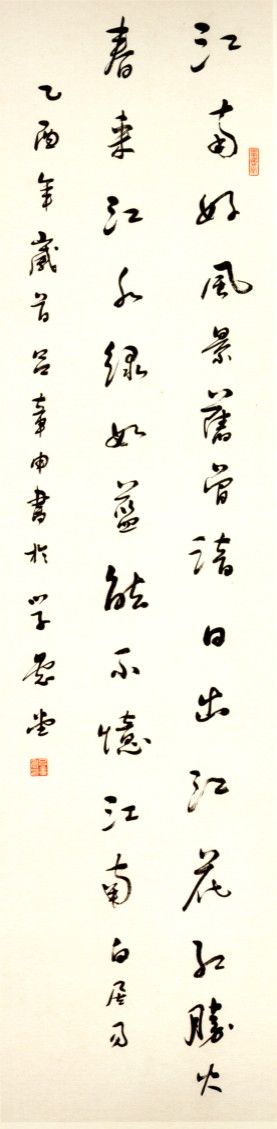 江南好風景舊曾諳日出江花紅勝火
春來江水綠如藍能不憶江南白居易
乙酉年歲首呂章申書於學思堂